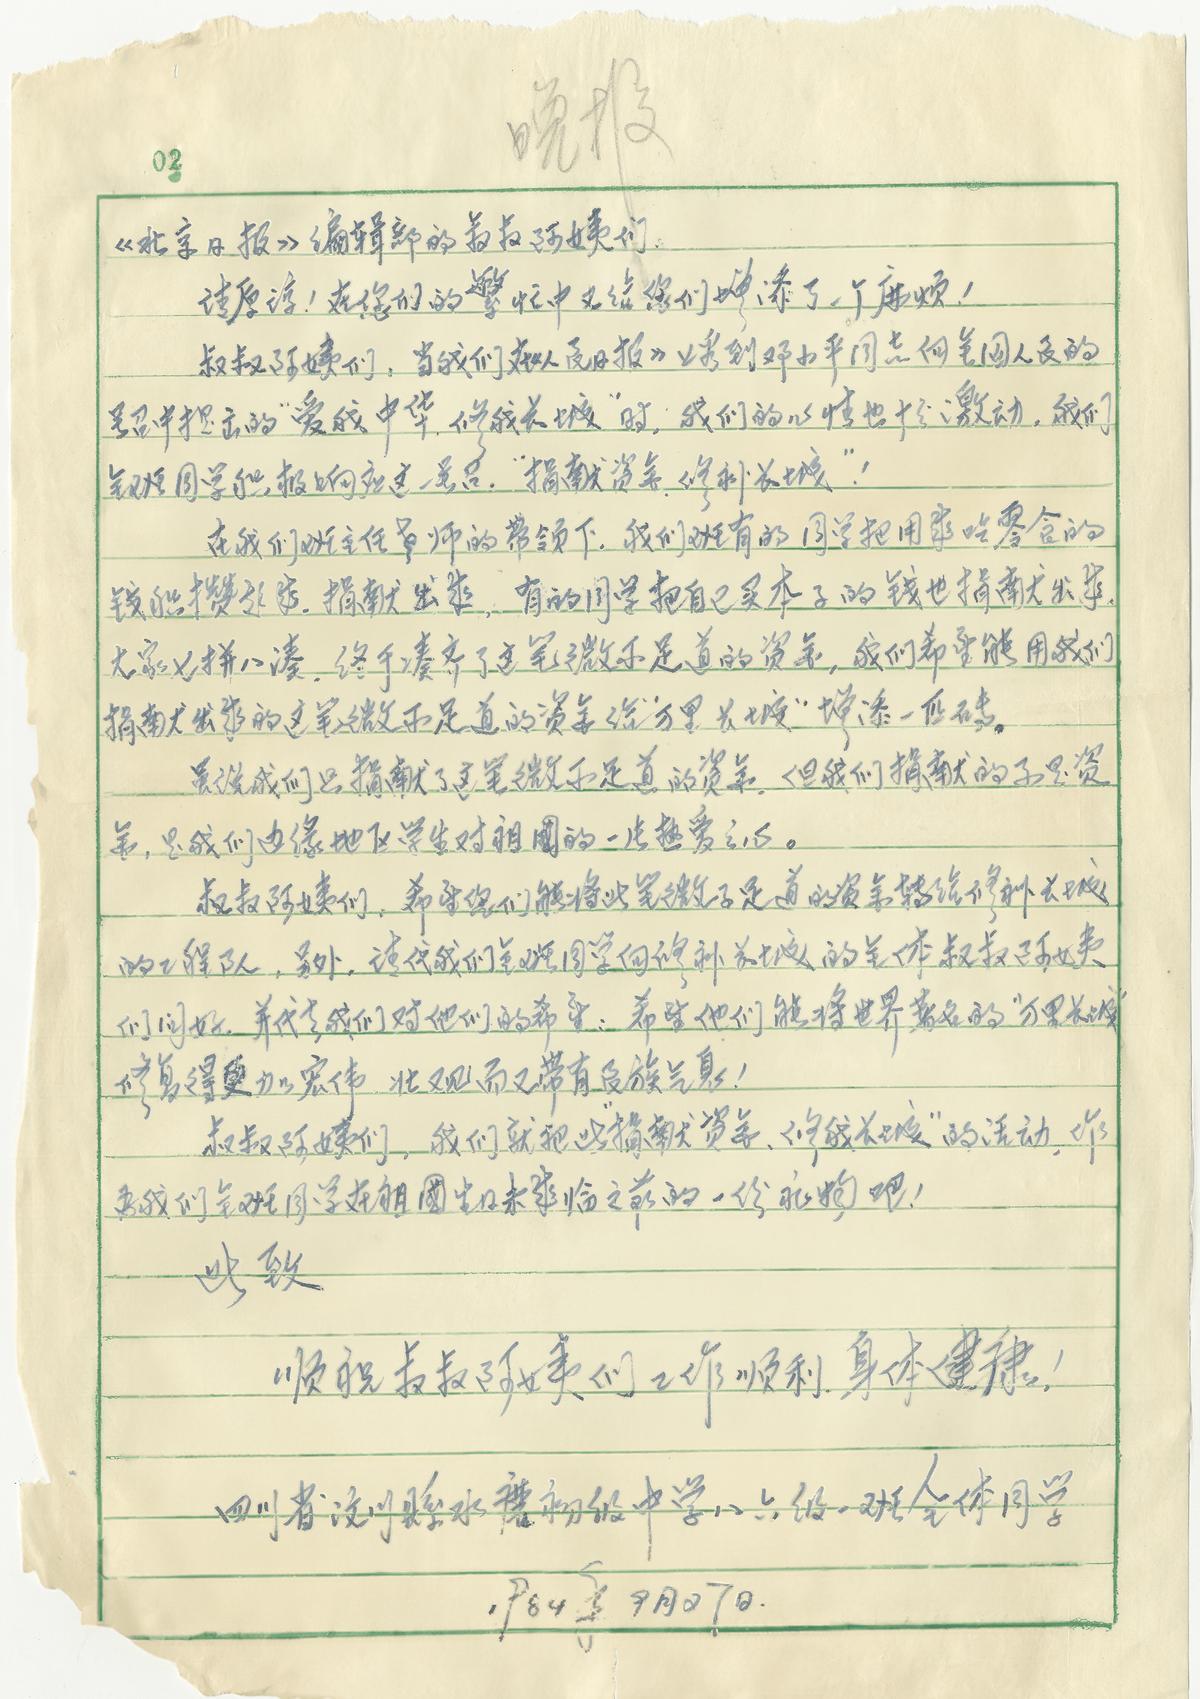 晚报
02
《北京日报》编辑部的叔叔阿姨们:
请原谅!在您们的繁忙中又给您们增添了一个麻烦!
叔叔阿姨们,当我们在《人民日报》上看到邓小平同志向全国人民的
号召中提出的“爱我中华,修我长城”时,我们的心情也十分激动,我们
全班同学积极响应这一号召,“捐献资金,修补长城”!
在我们班主任老师的带领下,我们班有的同学把用来吃零食的
钱积攒起来,捐献出来,有的同学把自己买本子的钱也捐献出来,
大家七拼八凑,终于凑齐了这笔微不足道的资金,我们希望能用我们
捐献出来的这笔微不足道的资金给“万里长城”增添一匹砖。
虽说我们只捐献了这笔微不足道的资金,但我们捐献的不是资
金,是我们边缘地区学生对祖國的一片热爱之心。
叔叔阿姨们,希望您们能将此笔微不足道的资金转给修补长城
的工程队,另外,请代我们全班同学向修补长城的全体叔叔阿姨
们问好,并代表我们对他们的希望:希望他们能将世界著名的“万里长城”
修复得更加宏伟壮观而又带有民族气息!
叔叔阿姨们,我们就把此“捐献资金、修我长城”的活动,作
为我们全班同学在祖國生日未来临之前的一份礼物吧!
此致
顺祝叔叔阿姨们工作顺利,身体健康!
四川省汶川县水磨初级中学八六级一班全体同学
1984年9月27日.